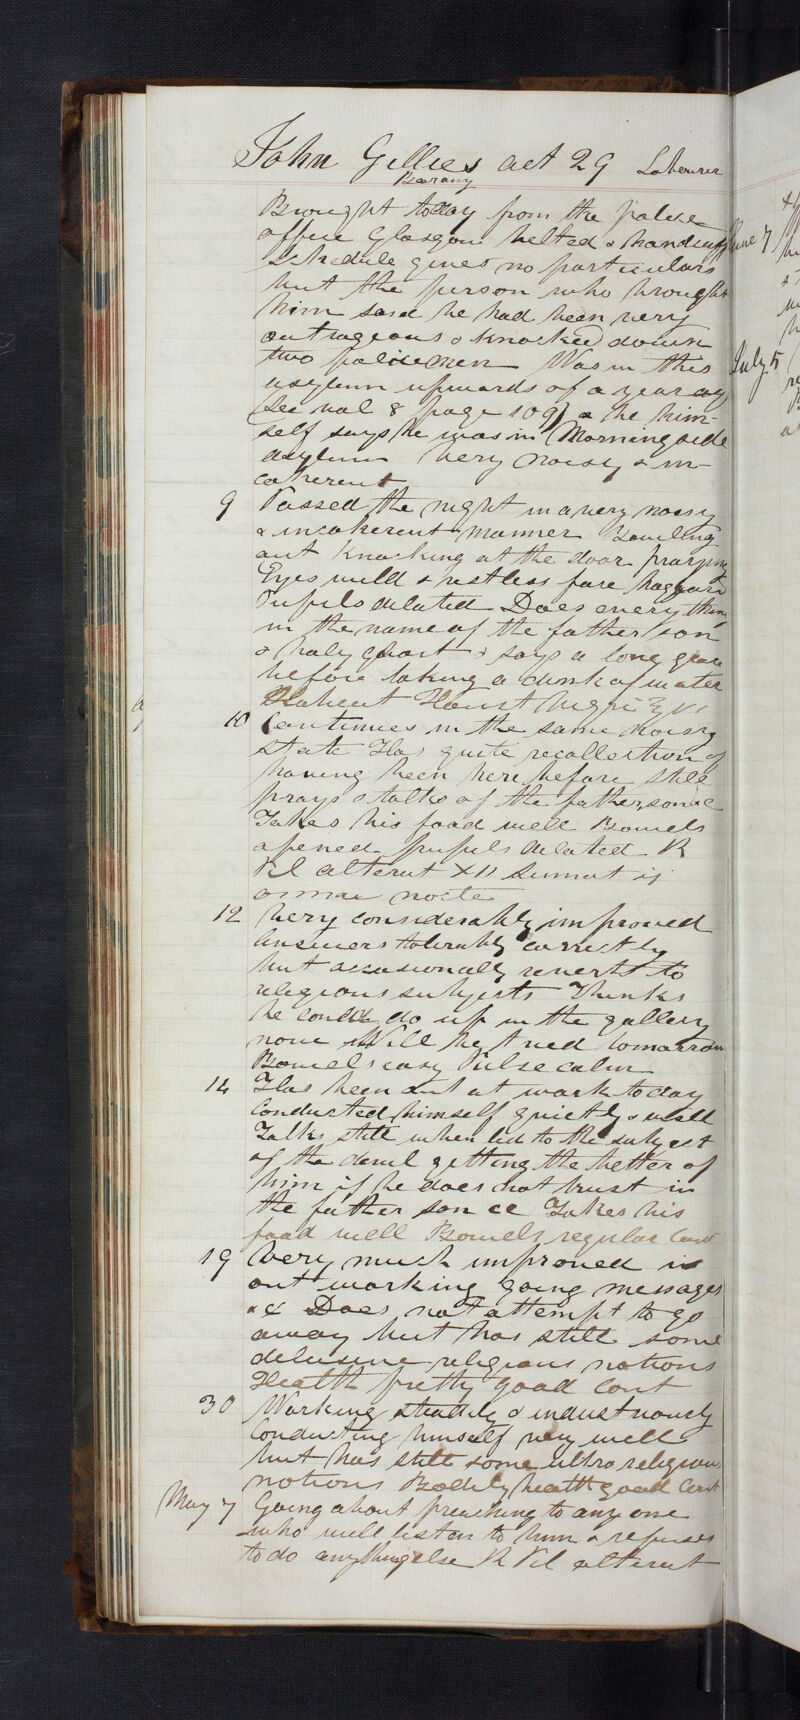 John Gillies aet 29 Labourer
Barony
Brought today from the police
office Glasgow belted & handcuff
schedule gives no particulars
but the person who brought
him said he had been very
outrageous & knocked down
two policemen Was in this
asylum upwards of a year ag
(See vol 8 page 109) & he him-
self says he was in Morningside
asylum Very noisy & in-
coherent
9 Passed the night in a very noisy
& incoherent manner Bawling
out knocking at the door praying
Eyes wild & restless face haggard
Pupils dilated Does every thing
in the name of the father son
& holy ghost & says a long grace
before taking a drink of water
Habeat Haust Nigr
10 Continues in the same noisy
state Has quite recollection of
having been here before still
prays & talks of the father, son &c
Takes his food well Bowels
opened pupils dilated R
Pil alterat XII Sumat ij
omni nocte
12 Very considerably improved
Answers tolerably correctly
but occasionally reverts to
religious subjects Thinks
he could do up in the gallery
now Will be tried tomorrow
Bowels easy Pulse calm
14 Has been out at work today
Conducted himself quietly & well
Talks still when led to the subject
of the devil getting the better of
him if he does not trust in
the father son &c Takes his
food well Bowels regular Cont
19 Very much improved is
out working going messages
&c Does not attempt to go
away but has still some
delusive religious notions
Health pretty good Cont
30 Working steadily & industriously
Conducting himself very well
but has still some ultra religious
notions Bodily health good Cont
May 7 Going about preaching to any one
who will listen to him & refuses
to do anything else R Pil alterat
June 7
July 5